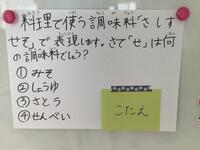 料理で使う調味料「さしす
せそ」で表現します。さて「せ」は何
の調味料でしょう？
① みそ
② しょうゆ
③ さとう
④ せんべい
こたえ